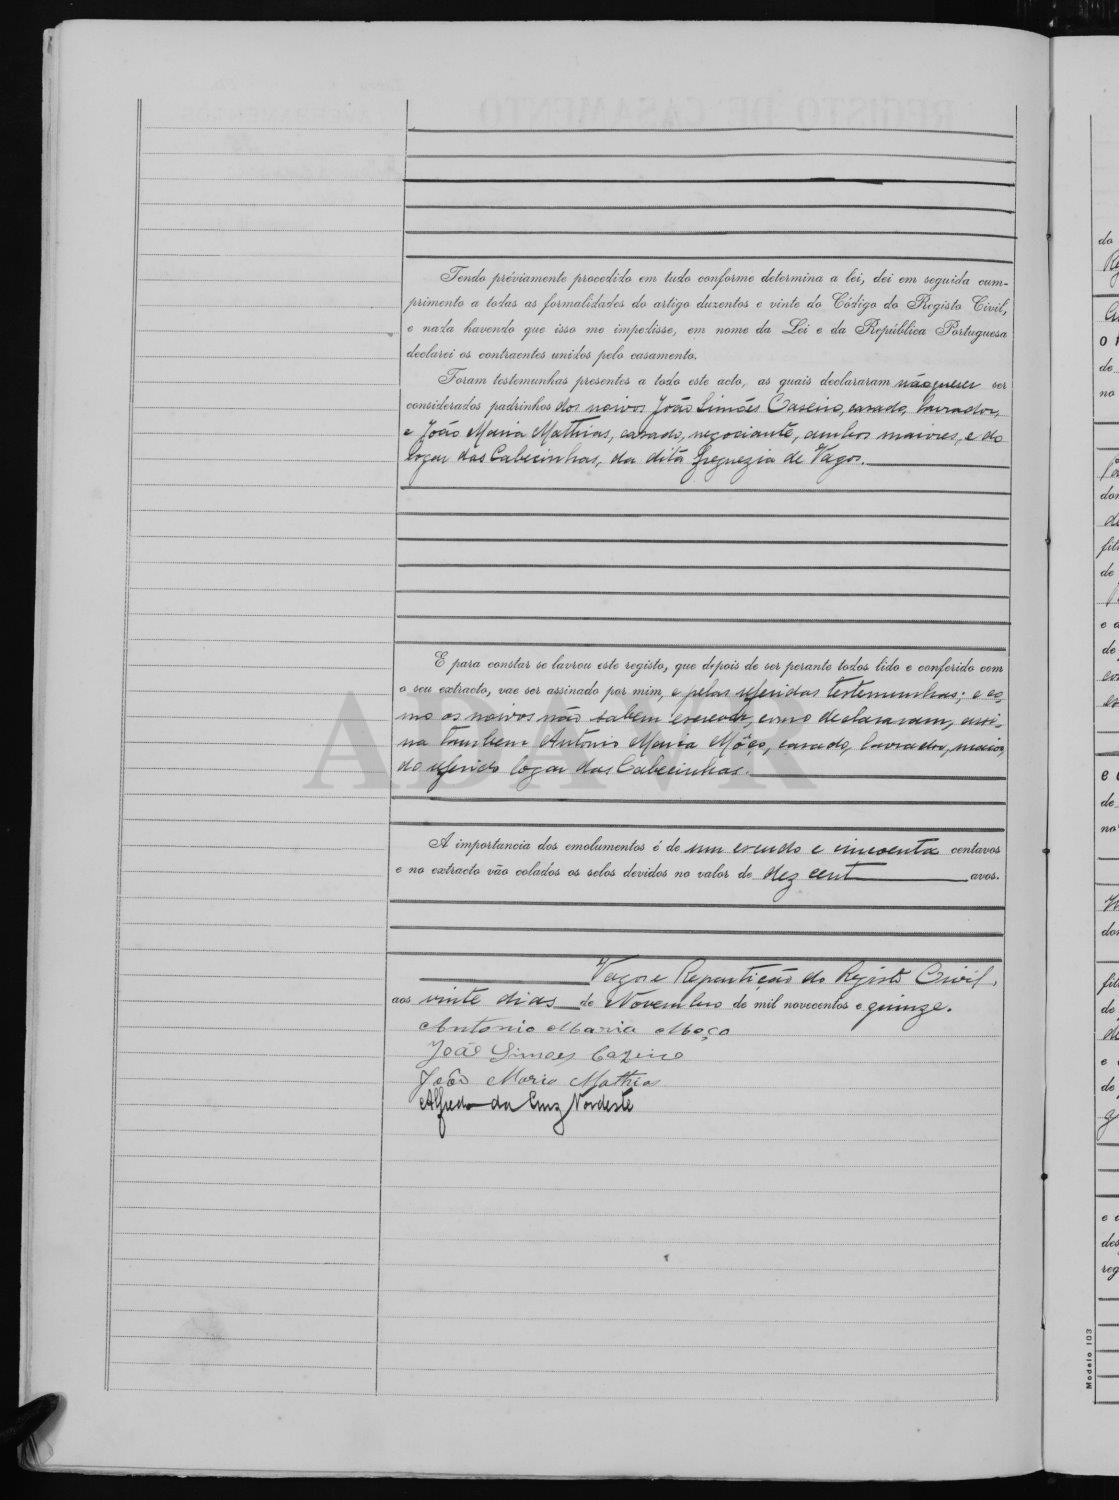 Tendo préviamente procedido em tudo conforme determina a lei, dei em seguida cum-
primento a todas as formalidades do artigo duzentos e vinte do Código do Registo Civil,
e nada havendo que isso me impedisse, em nome da Lei e da República Portuguesa
declarei os contraentes unidos pelo casamento.
Foram testemunhas presentes a todo este acto, as quais declararam não querer ser
considerados padrinhos dos noivos João Simões Caseiro, casado, lavrador,
e João Maria Mathias, casado, negociante, ambos maiores, e do
logar das Cabecinhas, da dita freguezia de Vagos.
E para constar se lavrou este registo, que depois de ser perante todos lido e conferido com
o seu extracto, vae ser assinado por mim, e pelas referidas testemunhas; e co-
mo os noivos não sabem escrever, como declararam, assi-
na tambem Antonio Maria Môço, casado, lavrador, maior,
do referido logar das Cabecinhas.
ADAVR
A importancia dos emolumentos é de um escudo e cincoenta centavos
e no extracto vão colados os selos devidos no valor de dez cent avos.
Vagos e Repartição do Registo Civil,
aos vinte dias de Novembro de mil novecentos e quinze.
Antonio Maria Moço
João Simoes Cazeiro
João Maria Mathias
Alfredo da Cruz Nordeste
Modelo 103